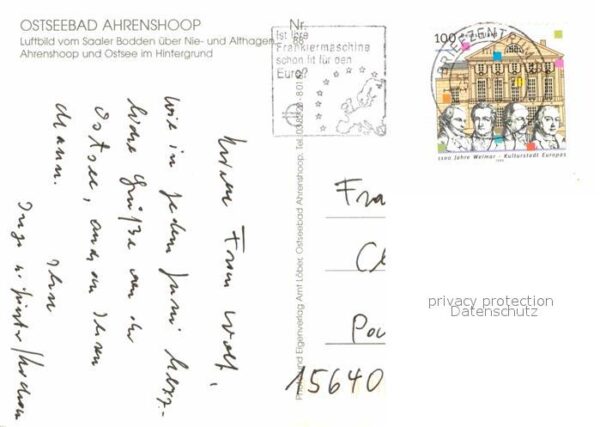 OSTSEEBAD AHRENSHOOP
Luftbild vom Saaler Bodden über Nie- und Althagen,
Ahrenshoop und Ostsee im Hintergrund
Nr.
Ist Ihre
Frankiermaschine
schon fit für den
Euro?
100
BRIEFZENTRUM
1100 Jahre Weimar - Kulturstadt Europas
Photo und Eigenverlag Arnt Löber, Ostseebad Ahrenshoop, Tel.
Liebe Frau Wolf,
wie in jedem Juni herz-
liche Grüße von der
Ostsee, auch an Ihren
Mann.
Ihre
Fra
15640
privacy protection
Datenschutz